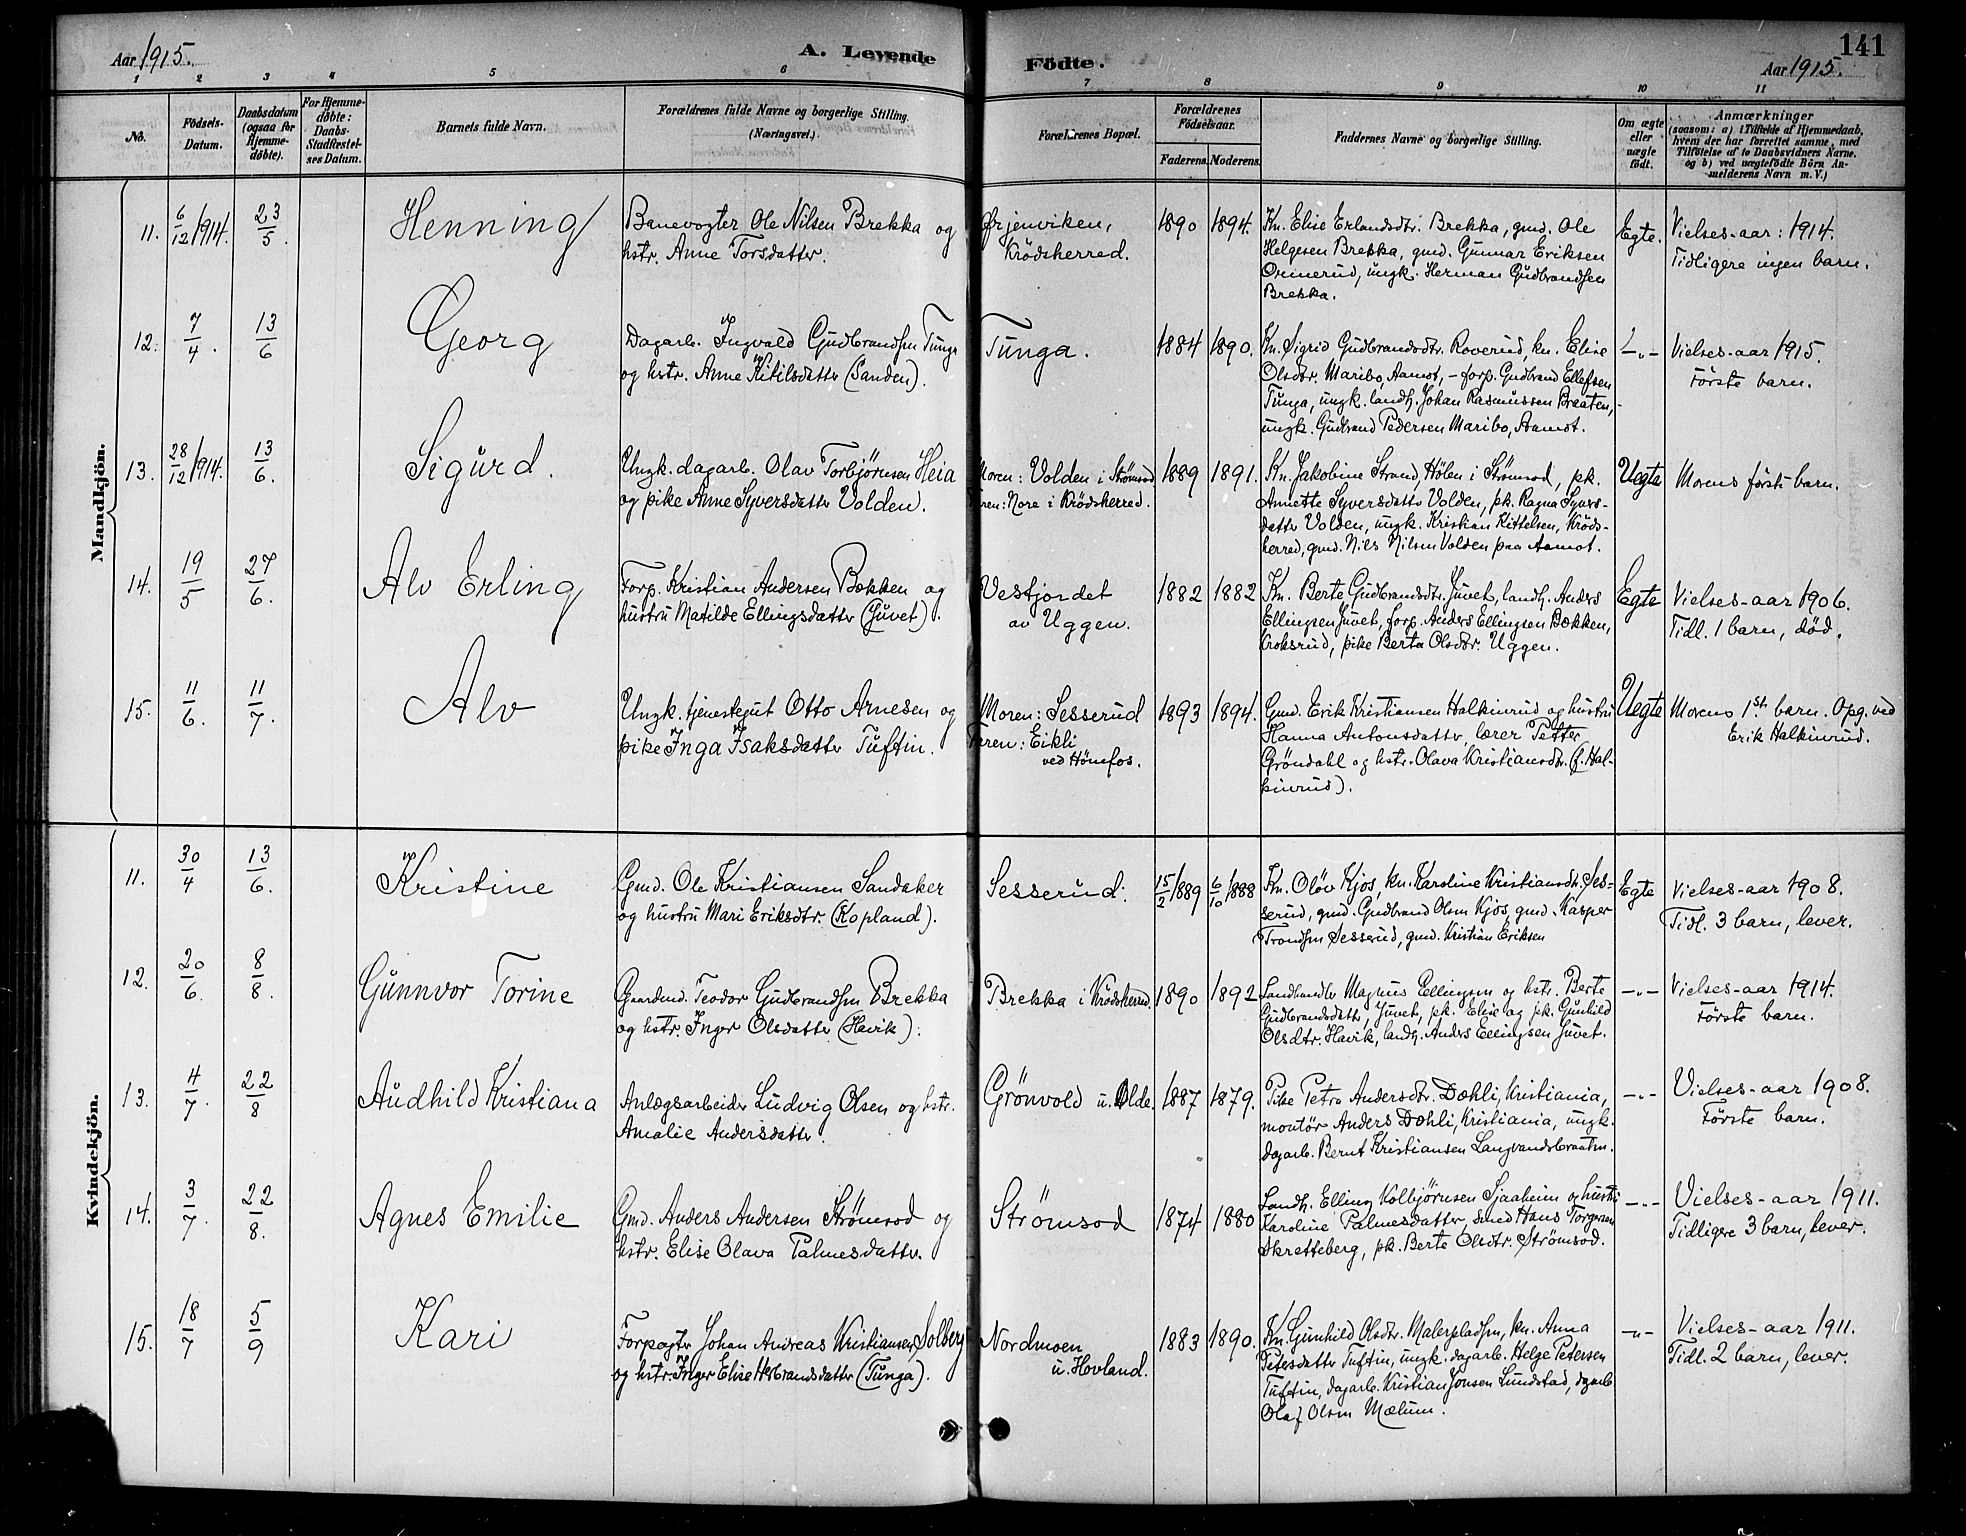 Aar 1915.
A. Levende
Födte.
141
Aar 1915.
1 2 3 4 5 6 7 8 9 10 11
No.
Födsels-Datum.
Daabsdatum (ogsaa for Hjemme-döbte).
For Hjemme-döbte: Daabs-Stadfæstel-ses Datum.
Barnets fulde Navn.
Forældrenes fulde Navne og borgerlige Stilling. (Næringsvei.)
Forældrenes Bopæl.
Forældrenes Födselsaar.
Faderens. Moderens.
Faddernes Navne og borgerlige Stilling.
Om ægte eller uægte födt.
Anmærkninger
(saasom: a) i Tilfælde af Hjemmedaab,
hvem der har forrettet samme, med
Tilföielse af to Daabsvidners Navne.
og b) ved uægtefödte Börn An-
melderens Navn m. V.)
Mandkjön.
11. 6/12 1914. 23/5. Henning
Banevogter Ole Nilsen Brekka og
hstr. Anne Torsdatter.
Ørjenviken,
Krödsherred.
1890 1894.
Kn. Elise Erlandsdtr. Brekka, gmd. Ole
Helgesen Brekka, gmd. Gunnar Eriksen
Ormerud, ungk. Herman Gudbrandsen
Brekka.
Egte.
Vielses-aar: 1914.
Tidligere ingen barn.
12. 7/4. 13/6 Georg
Dagarb. Ingvald Gudbrandsen Tunga
og hstr. Anne Kitilsdatter (Sanden).
Tunga.
1884 1890.
Kn. Sigrid Gudbrandsdtr. Roverud, kn. Elise
Olsdtr. Maribo, Aamot, - forp. Gudbrand Ellefsen
Tunga, ungk. landh. Johan Rasmussen Braaten,
ungk. Gudbrand Pedersen Maribo, Aamot.
-"-
Vielses-aar 1915.
Förste barn.
13. 28/12 1914. 13/6. Sigurd.
Ungk. dagarb. Olav Torbjörnsen Heia
og pike Anne Syversdatter Volden.
Moren: Volden i Strømsod
Faren: Nore i Krödsherred.
1889 1891.
Kn. Jakobine Strand, Hölen i Strømsod, pk.
Annette Syversdatter Volden, pk. Ragna Syvers-
datter Volden, ungk. Kristian Kittelsen, Kröds-
herred, gmd. Nils Nilsen Volden paa Aamot.
Uegte
Morens förste barn.
14. 19/5 27/6. Alv Erling
Forp. Kristian Andersen Bækken og
hustru Matilde Ellingsdatter (Juvet).
Vestjordet
av Uggen.
1882 1882
Kn. Berte Gudbrandsdtr. Juvet, landh. Anders
Ellingsen Juvet, forp. Anders Ellingsen Bækken,
Kroksrud, pike Berta Olsdtr. Uggen.
Egte
Vielses-aar 1906.
Tidl. 1 barn, død.
15. 11/6. 11/7. Alv
Ungk. tjenestegut Otto Arnesen og
pike Inga Isaksdatter Tuftin.
Moren: Sesserud
Faren: Eikli
ved Hönefos.
1893 1894.
Gmd. Erik Kristiansen Halkinrud og hustru
Hanna Antonsdatter, lærer Petter
Gröndahl og hstr. Olava Kristiansdtr. (f. Hal-
kinrud).
Uegte
Morens 1st barn. Opg. ved
Erik Halkinrud.
Kvindekjön.
11. 30/4 13/6. Kristine
Gmd. Ole Kristiansen Sandaker
og hustru Mari Eriksdtr. (Kopland).
Sesserud.
15/2 1889 6/10 1888
Kn. Olöv Kjøs, kn. Karoline Kristiansdtr. Ses-
serud, gmd. Gudbrand Olsen Kjøs, gmd. Kasper
Trondsen Sesserud, gmd. Kristian Eriksen
Egte
Vielses-aar 1908.
Tidl. 3 barn, lever.
12. 20/6. 8/8. Gunnvor Torine
Gaardmd. Teodor Gudbrandsen Brekka
og hstr. Inger Olsdatter (Havik).
Brekka i Krödsherred.
1890 1892
Landhandler Magnus Ellingsen og hstr. Berte
Gudbrandsdatter Juvet, pk. Elise og pk. Gunhild
Olsdtr. Havik, landh. Anders Ellingsen Juvet.
-"-
Vielses-aar 1914.
Förste barn.
13. 4/7. 22/8 Audhild Kristiana
Anlægsarbeider Ludvig Olsen og hstr.
Amalie Andersdatter.
Grönvold u. Olde.
1887 1879.
Pike Petra Andersdtr. Dæhli, Kristiania,
montör Anders Dæhli, Kristiania, ungk.
dagarb. Bernt Kristiansen Langvandsbraaten.
-"-
Vielses-aar 1908.
Förste barn.
14. 3/7. 22/8. Agnes Emilie
Gmd. Anders Andersen Strømsod og
hstr. Elise Olava Palmesdatter.
Strömsod
1874 1880
Landh. Elling Kolbjörnsen Sjaaheim og hustru
Karoline Palmesdatter, smed Hans Torgersen
Skretteberg, pk. Berte Olsdtr. Strømsod.
-"-
Vielses-aar 1911.
Tidligere 3 barn, lever.
15. 18/7 5/9 Kari
Forpagter Johan Andreas Kristiansen Solberg
og hstr. Inger Elise Herbrandsdatter (Tunga).
Nordmoen
u. Hovland.
1883 1890.
Kn. Gunhild Olsdtr. Malerpladsen, kn. Anna
Petersdatter Tuftin, ungk. dagarb. Helge Petersen
Tuftin, dagarb. Kristian Jonsen Lundstad, dagarb.
Olaf Olsen Mælum.
-"-
Vielses-aar 1911.
Tidl. 2 barn, lever.